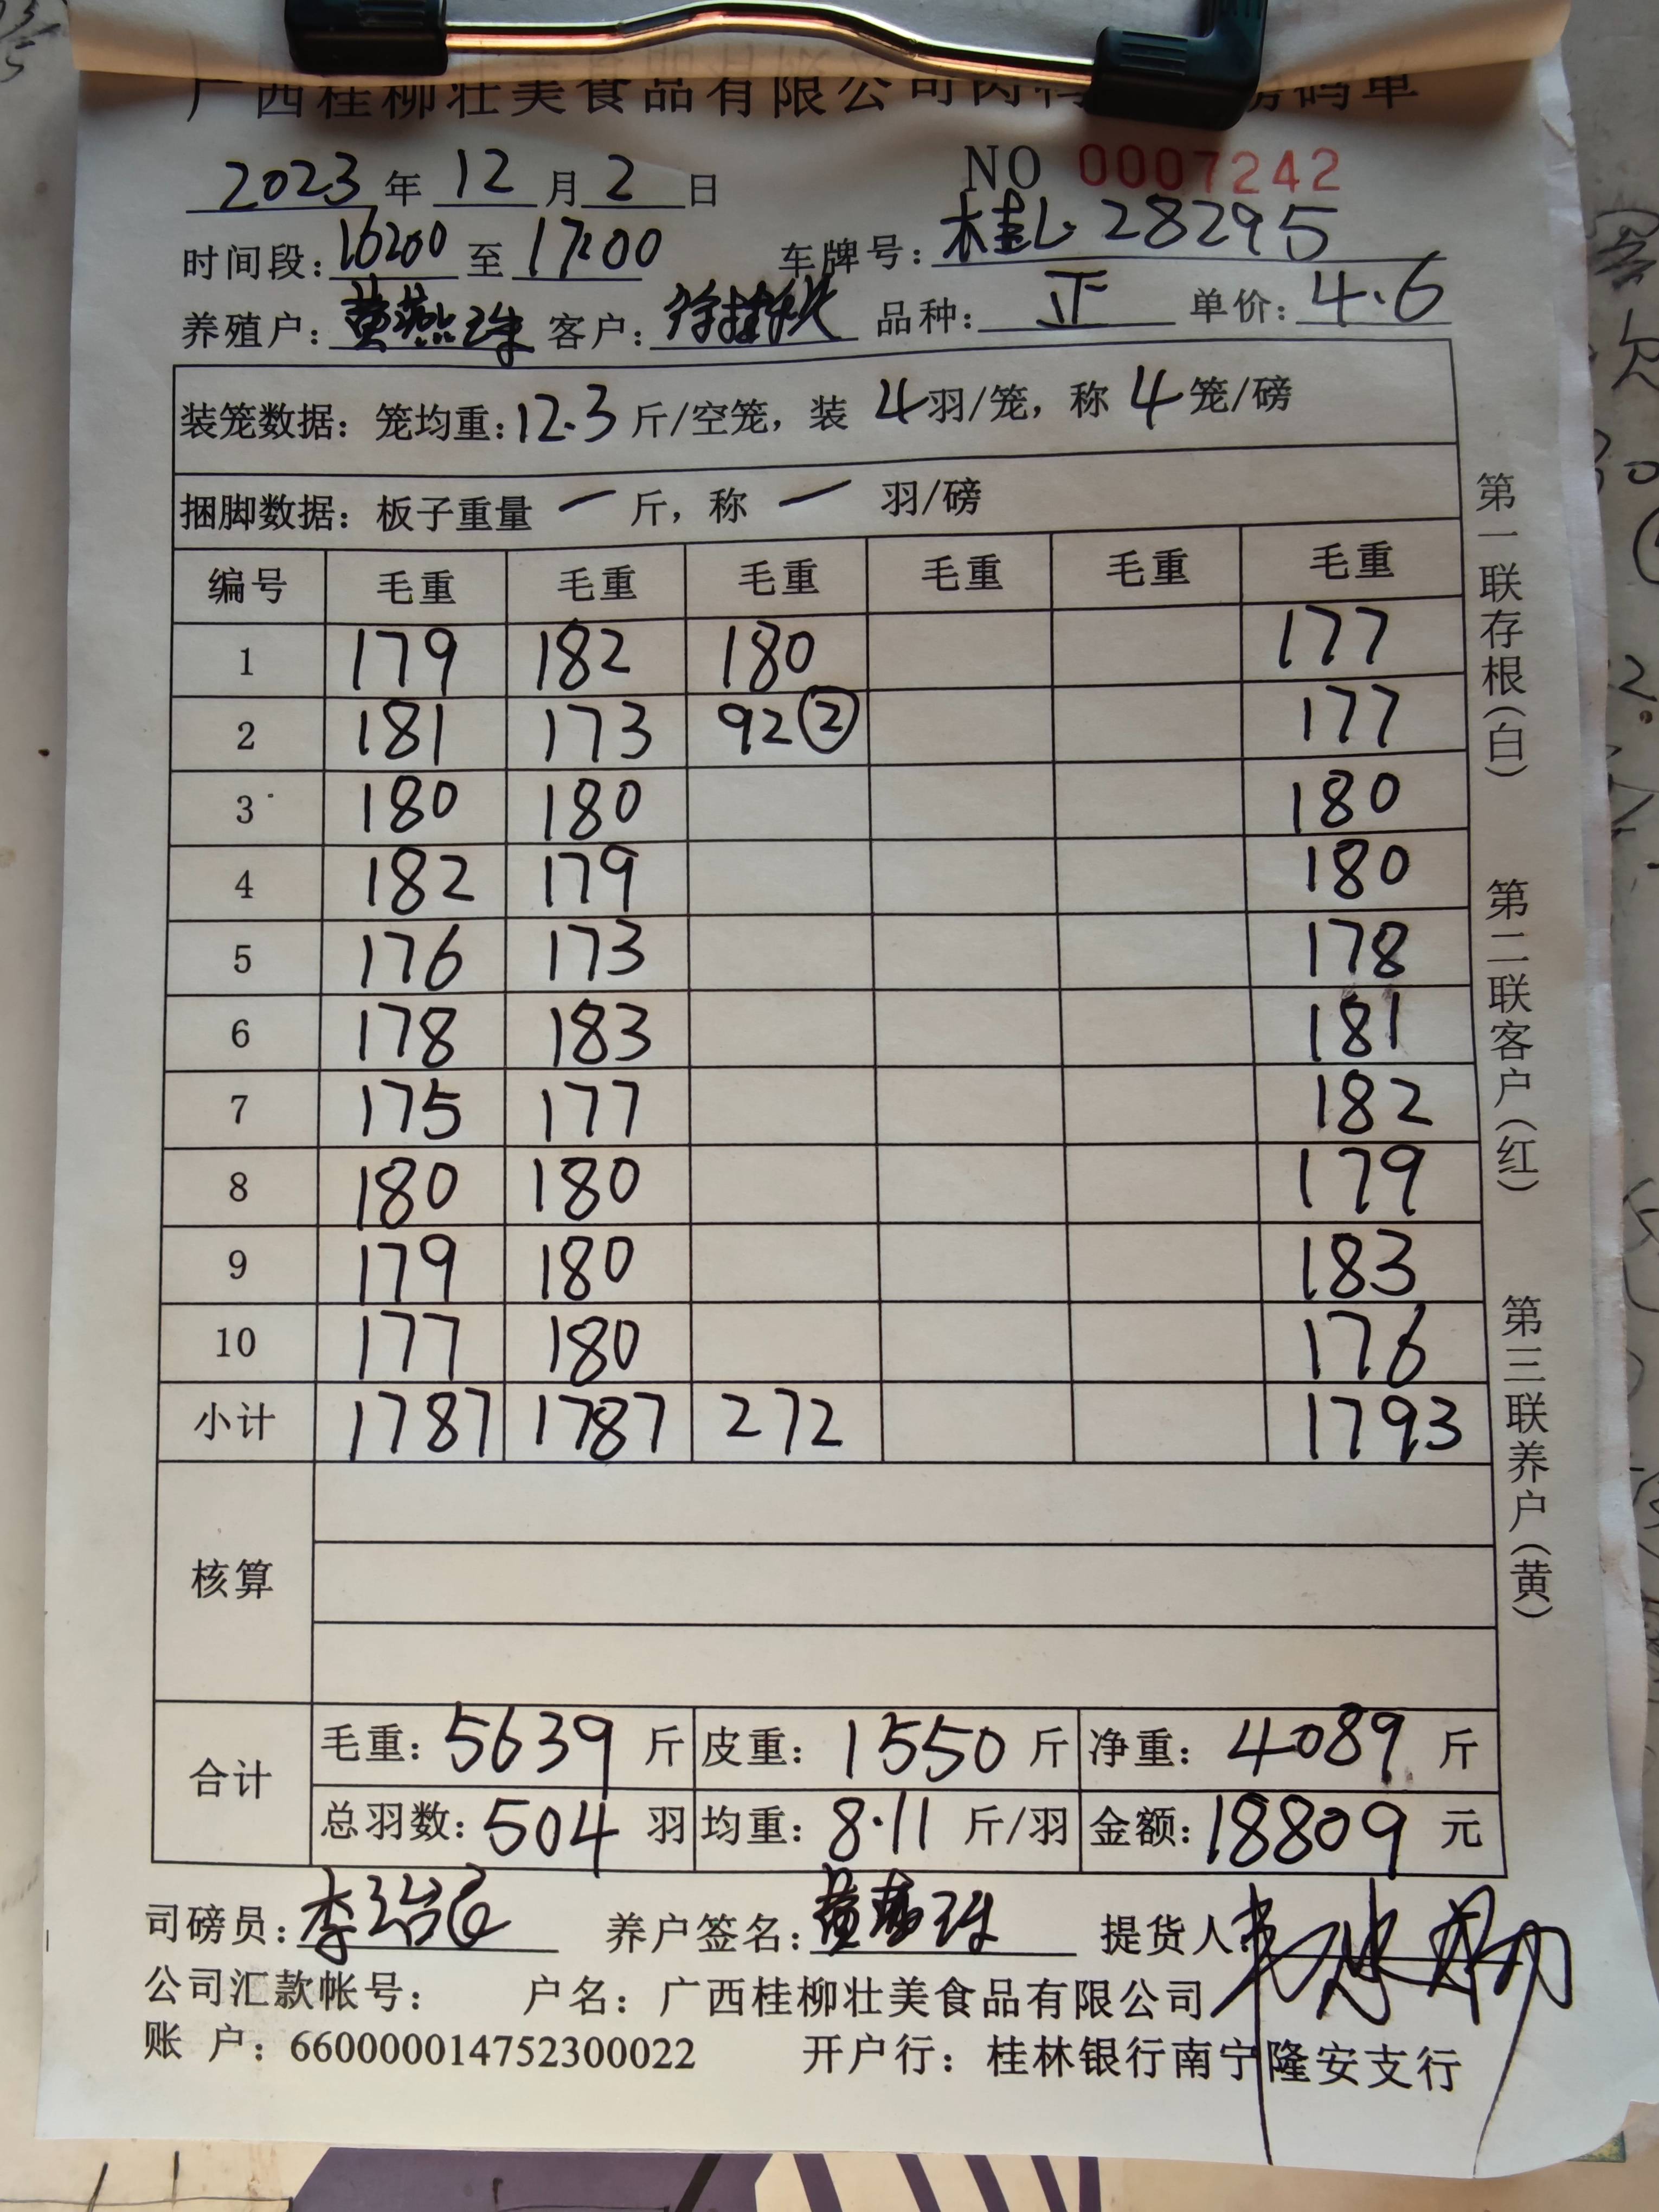 广西桂柳壮美食品有限公司肉 磅码单
2023年12月2日 NO 0007242
时间段:16:00至17:00 车牌号:桂L·28295
养殖户:黄燕珠 客户: 品种:正 单价:4.6
装笼数据:笼均重:12.3斤/空笼,装4羽/笼,称4笼/磅
捆脚数据:板子重量一斤,称一羽/磅
编号 毛重 毛重 毛重 毛重 毛重 毛重
1 179 182 180 177
2 181 173 92② 177
3 180 180 180
4 182 179 180
5 176 173 178
6 178 183 181
7 175 177 182
8 180 180 179
9 179 180 183
10 177 180 176
小计 1787 1787 272 1793
核算
合计
毛重:5639斤 皮重:1550斤 净重:4089斤
总羽数:504羽 均重:8.11斤/羽 金额:18809元
司磅员: 养户签名:黄燕珠 提货人:
公司汇款帐号: 户名:广西桂柳壮美食品有限公司
账户:660000014752300022 开户行:桂林银行南宁隆安支行
第一联存根(白) 第二联客户(红) 第三联养户(黄)